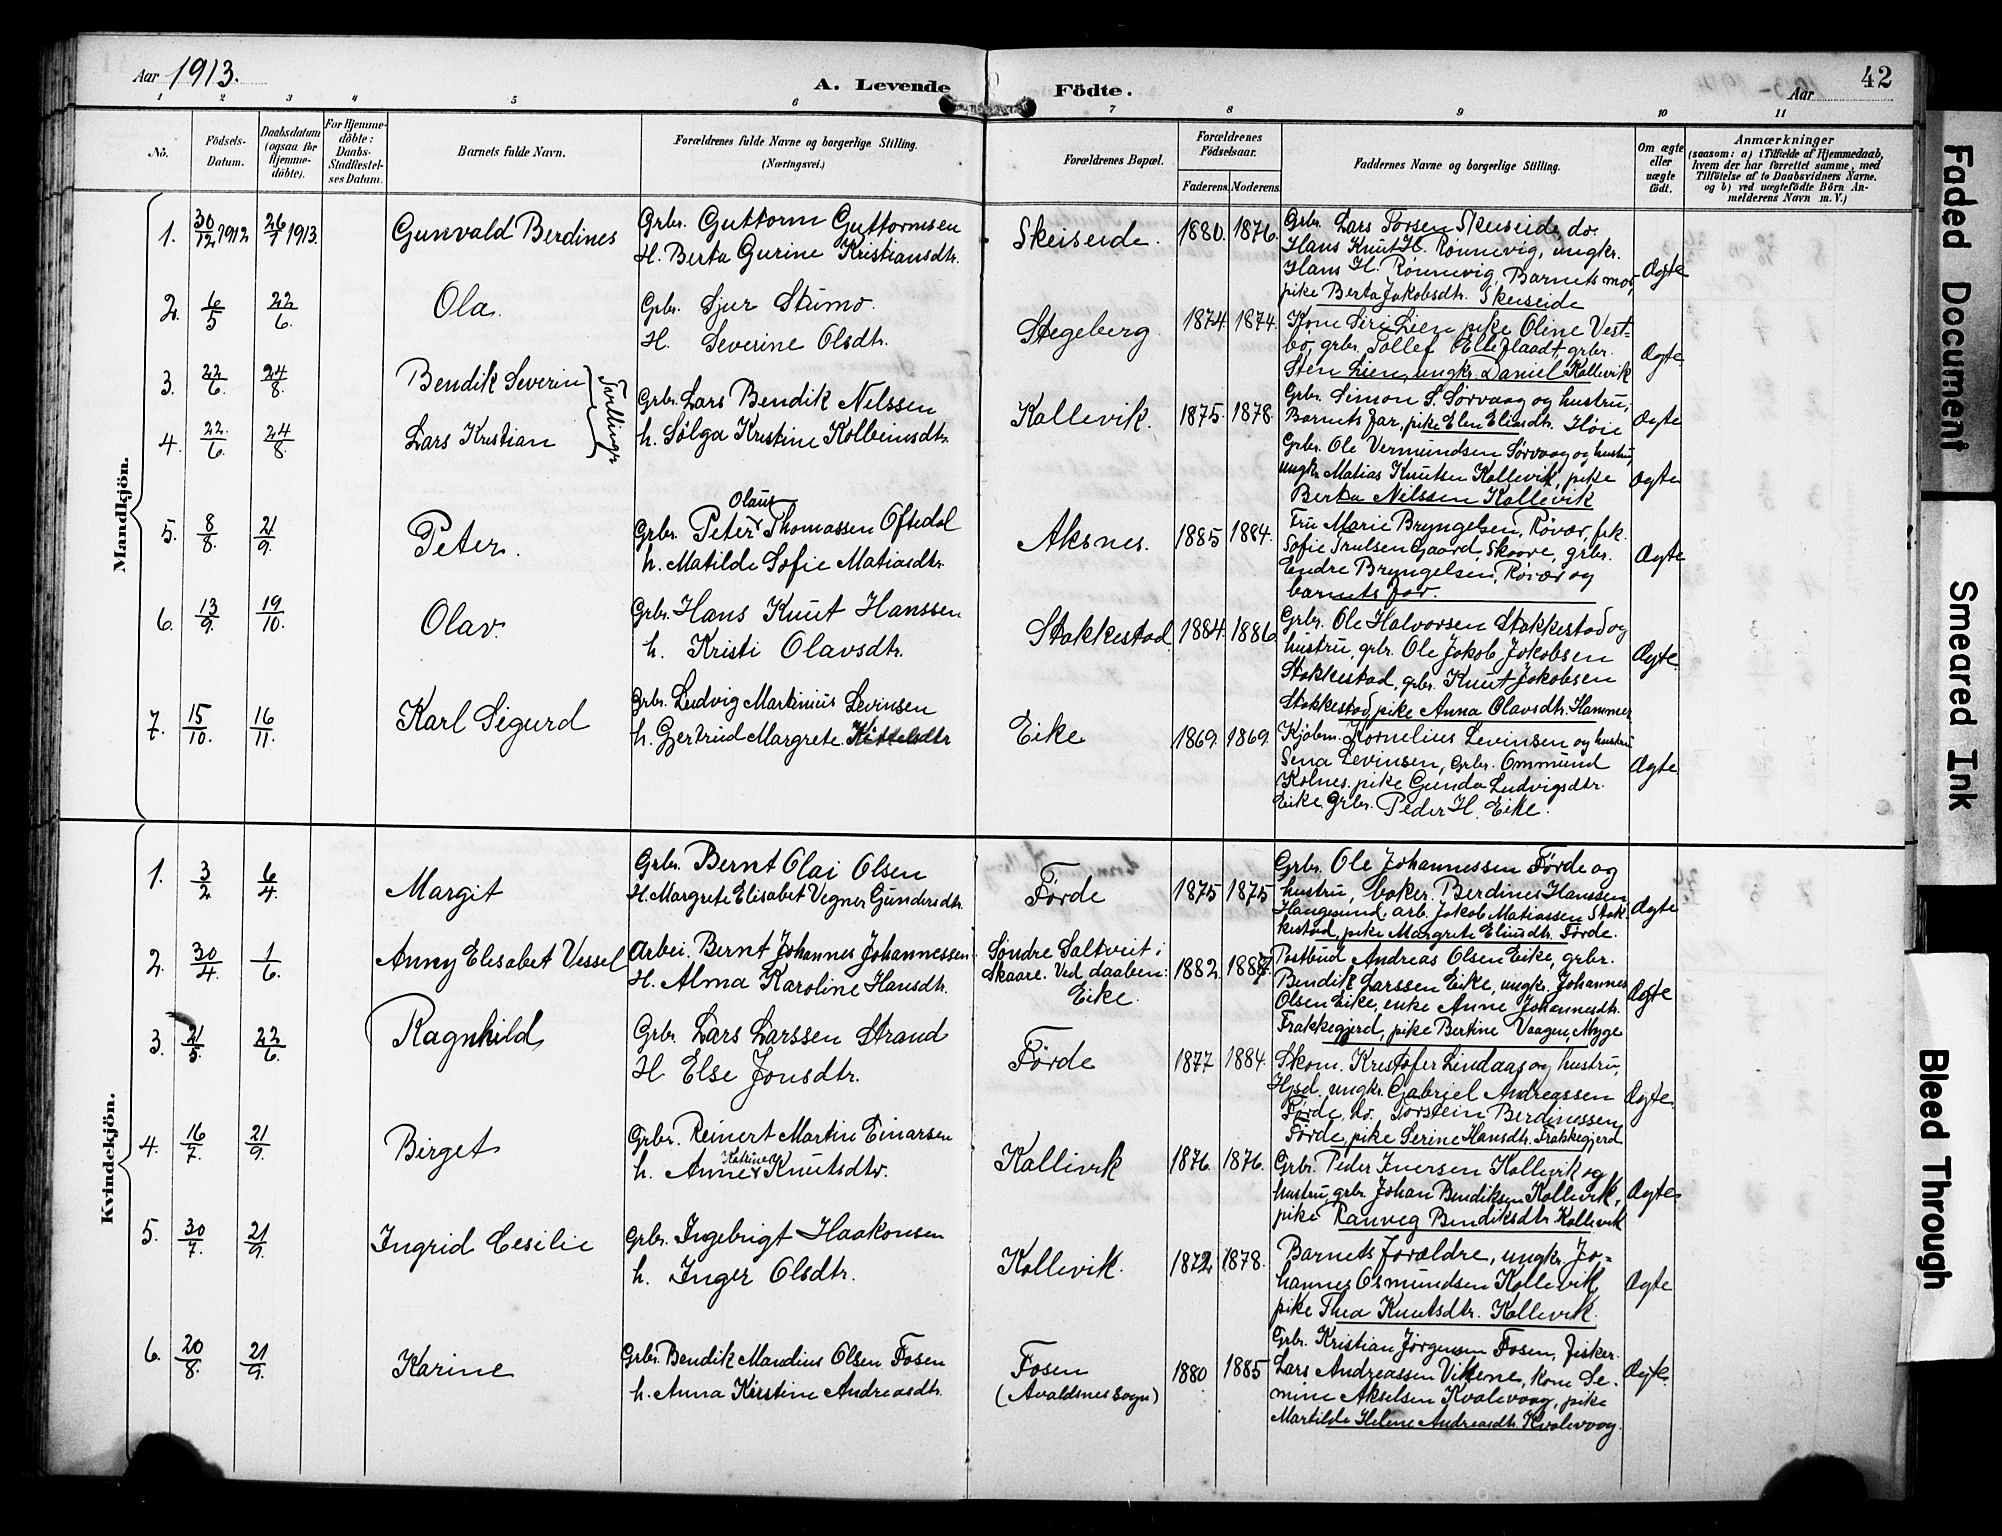 Aar 1913.
A. Levende Födte.
Aar
42
1 2 3 4 5 6 7 8 9 10 11
No.
Födsels-Datum.
Daabsdatum (ogsaa for Hjemme-döbte).
For Hjemme-döbte: Daabs-Stadfæstel-ses Datum.
Barnets fulde Navn.
Forældrenes fulde Navne og borgerlige Stilling. (Næringsvei.)
Forældrenes Bopæl.
Forældrenes Födselsaar.
Faderens. Moderens.
Faddernes Navne og borgerlige Stilling.
Om ægte eller uægte födt.
Anmærkninger
(saasom: a) i Tilfælde af Hjemmedaab, hvem der har forrettet samme, med Tilföielse af to Daabsvidners Navne. og b) ved uægtefödte Börn An-melderens Navn m. V.)
Mandkjön.
1. 30/12 1912 26/1 1913. Gunvald Berdines
Grbr. Guttorm Guttormsen
H. Berta Gurine Kristiansdtr.
Skeiseide. 1880. 1876.
Grbr. Lars Torsen Skeiseide, do
Hans Knut H. Rønnevig, ungkr.
Hans H. Rønnevig, Barnets mor,
pike Berta Jakobsdtr. Skeiseide
Ægte
2. 6/5 22/6. Ola.
Grbr. Sjur Stumo.
H. Severine Olsdtr.
Stegeberg. 1874. 1874.
Kone Siri Lien, pike Oline Vest-
bø, grbr. Tollef Elleflaadt, grbr.
Sten Lien, ungkr. Daniel Kallevik
Ægte.
3. 22/6. 24/8. Bendik Severin
4. 22/6. 24/8. Lars Kristian
Tvillinger
Grbr. Lars Bendik Nilssen
h. Sølga Kristine Kolbeinsdtr.
Kallevik. 1875. 1878.
Grbr. Simon S. Sørvaag og hustru,
Barnets far, pike Elen Eliasdtr. Høie
Ægte
Grbr. Ole Vermundsen Sørvaag og hustru,
ungkr. Matias Knutsen Kallevik, pike
Berta Nilssen Kallevik
Ægte
5. 8/8. 21/9. Peter.
Olaus
Grbr. Peter Thomassen Oftedal
h. Matilde Sofie Matiasdtr.
Aksnes. 1885 1884.
Fru Marie Bryngelsen, Røvær, frk.
Sofie Trulsen Gaard, Skaare, grbr.
Endre Bryngelsen, Røvær og
barnets far.
Ægte
6. 13/9. 19/10. Olav.
Grbr. Hans Knut Hanssen
h. Kristi Olavsdtr.
Stakkestad 1884. 1886
Grbr. Ole Halvorsen Stakkestad og
hustru, grbr. Ole Jakob Jakobsen
Stakkestad, grbr. Knut Jakobsen
Stakkestad, pike Anna Olavsdtr. Hammer
Ægte.
7. 15/10. 16/11. Karl Sigurd
Grbr. Ludvig Martinius Levinsen
h. Gjertrud Margrete Kittelsdtr
Eike 1869. 1869.
Kjøbm. Kornelius Levinsen og hustru
Sena Levinsen, Grbr. Ommund
Kolnes, pike Gunda Ludvigsdtr.
Eike, Grbr. Peder H. Eike.
Ægte.
Kvindekjön.
1. 3/2 6/4. Margit
Grbr. Bernt Olai Olsen
H. Margrete Elisabet Vegner Gundersdtr.
Førde 1875 1875
Grbr. Ole Johannessen Førde og
hustru, baker. Berdines Hanssen,
Haugesund, arb. Jakob Matiassen Stak-
kestad, pike Margrete Eliasdtr. Førde.
Ægte
2. 30/4. 1/6. Anny Elisabet Vessel
Arbei. Bernt Johannes Johannessen
H. Alma Karoline Hansdtr.
Søndre Saltveit i
Skaare. Ved daaben:
Eike.
1882.
Postbud Andreas Olsen Eike, grbr.
Bendik Larssen Eike, ungkr. Johannes
Olsen Eike, enke Anne Johannesdtr.
Frakkegjerd, pike Bertine Vaagen, Mygge
Ægte
3. 21/5. 22/6. Ragnhild
Grbr. Lars Larssen Strand
H Else Jonsdtr.
Førde 1877 1884.
Skom. Kristofer Lindaas og hustru,
Hgsd. ungkr. Gabriel Andreassen
Førde, do. Torstein Berdinessen
Førde, pike Serine Hansdtr. Frakkegjerd
Ægte.
4. 16/7. 21/9. Birget
Grbr. Reinert Martin Einarsen
h. Anne Knutsdtr.
Kallivik 1876. 1876.
Grbr. Peder Iversen Kallevik og
hustru, grbr. Johan Bendiksen Kallevik,
pike Ranveg Bendiksdtr. Kallevik
Ægte
5. 30/7. 21/9. Ingrid Cesilie
Grbr. Ingebrigt Haakonsen
h. Inger Olsdtr.
Kallevik. 1872 1878.
Barnets forældre, ungkr. Jo-
hannes Osmundsen Kallevik,
pike Thea Knutsdtr. Kallevik.
Ægte
6. 20/8. 21/9. Karine
Grbr. Bendik Mandius Olsen Fosen
h. Anna Kirstine Andreasdtr.
Fosen
(Avaldsnes sogn)
1880 1885
Grbr. Kristian Jørgensen Fosen, fisker
Lars Andreassen Vikene, kone Se-
mine Akselsen Kvalevaag, pike
Martilde Helene Andreasdtr. Kvalevaag.
Ægte.
Faded Document
Smeared Ink
Bleed Through